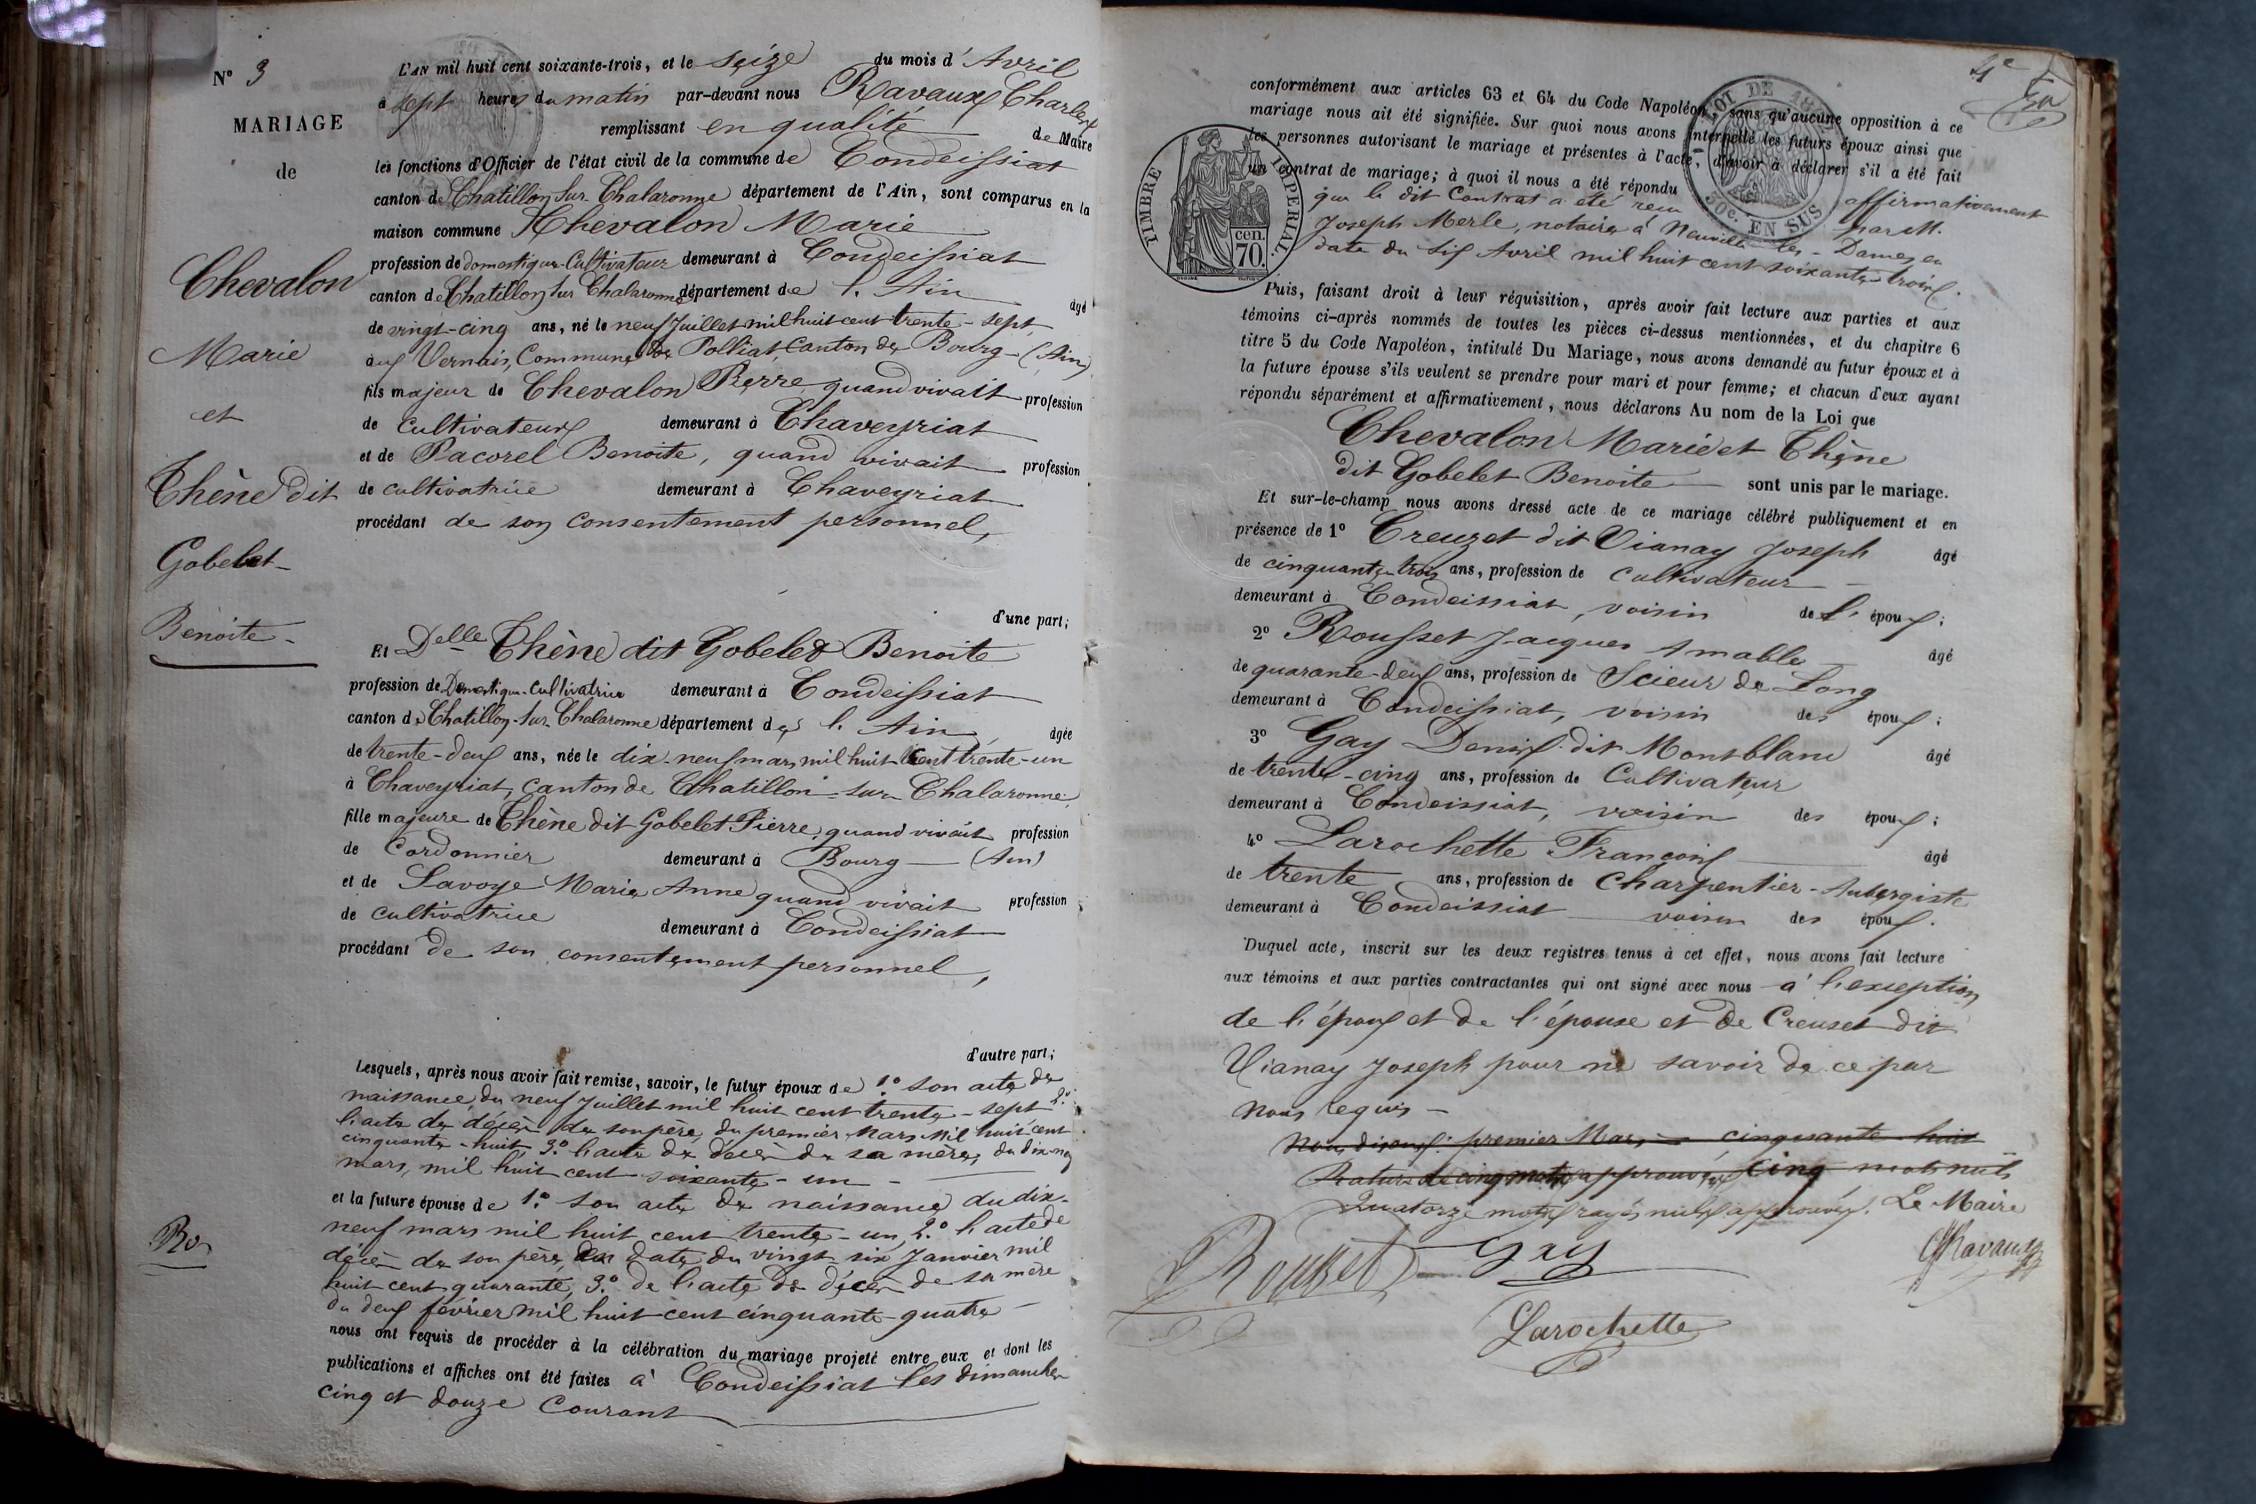 N° 3
MARIAGE
de
Chevalon
Marie
et
Thène dit
Gobelet
Benoite
L'AN mil huit cent soixante-trois, et le seize du mois d'Avril
à sept heures du matin par-devant nous Ravaux Charles
remplissant en qualité de Maire
les fonctions d'Officier de l'état civil de la commune de Condeissiat
canton de Chatillon sur Chalaronne département de l'Ain, sont comparus en la
maison commune Chevalon Marie
profession de domestique-Cultivateur demeurant à Condeissiat
canton de Chatillon sur Chalaronne département de l'Ain âgé
de vingt-cinq ans, né le neuf Juillet mil huit cent trente-sept,
aux Vernais, Commune de Polliat, Canton de Bourg (Ain)
fils majeur de Chevalon Pierre quand vivait profession
de Cultivateur demeurant à Chaveyriat
et de Pacorel Benoite, quand vivait profession
de cultivatrice demeurant à Chaveyriat
procédant de son consentement personnel,
d'une part;
Et Delle Chène dit Gobelet Benoite
profession de Domestique-Cultivatrice demeurant à Condeissiat
canton de Chatillon-sur-Chalaronne département de l'Ain, âgée
de trente-deux ans, née le dix-neuf mars mil huit cent trente-un
à Chaveyriat, Canton de Chatillon-sur-Chalaronne,
fille majeure de Chène dit Gobelet Pierre, quand vivait profession
de Cordonnier demeurant à Bourg (Ain)
et de Savoye Marie Anne quand vivait profession
de cultivatrice demeurant à Condeissiat
procédant de son consentement personnel,
d'autre part;
Lesquels, après nous avoir fait remise, savoir, le futur époux de 1° son acte de
naissance, du neuf Juillet mil huit cent trente-sept 2°
l'acte de décès de son père, du premier Mars mil huit cent
cinquante-huit, 3° l'acte de décès de sa mère, du dix-neuf
mars, mil huit cent soixante-un
et la future épouse de 1° son acte de naissance du dix-
neuf mars mil huit cent trente-un, 2° l'acte de
décès de son père, en date du vingt-six Janvier mil
huit cent quarante, 3° de l'acte de décès de sa mère
du deux février mil huit cent cinquante-quatre
nous ont requis de procéder à la célébration du mariage projeté entre eux et dont les
publications et affiches ont été faites à Condeissiat les dimanches
cinq et douze Courant
conformément aux articles 63 et 64 du Code Napoléon, sans qu'aucune opposition à ce
mariage nous ait été signifiée. Sur quoi nous avons interpellé les futurs époux ainsi que
les personnes autorisant le mariage et présentes à l'acte, d'avoir à déclarer s'il a été fait
un contrat de mariage; à quoi il nous a été répondu affirmativement
que le dit Contrat a été reçu par M.
Joseph Merle, notaire à Neuville-les-Dames, en
date du six Avril mil huit cent soixante-trois.
TIMBRE IMPERIAL
70 cen.
LOI DE 1862
50c. EN SUS
Puis, faisant droit à leur réquisition, après avoir fait lecture aux parties et aux
témoins ci-après nommés de toutes les pièces ci-dessus mentionnées, et du chapitre 6
titre 5 du Code Napoléon, intitulé Du Mariage, nous avons demandé au futur époux et à
la future épouse s'ils veulent se prendre pour mari et pour femme; et chacun d'eux ayant
répondu séparément et affirmativement, nous déclarons Au nom de la Loi que
Chevalon Marie et Chène
dit Gobelet Benoite sont unis par le mariage.
Et sur-le-champ nous avons dressé acte de ce mariage célébré publiquement et en
présence de 1° Creuzet dit Vianay Joseph âgé
de cinquante-trois ans, profession de Cultivateur
demeurant à Condeissiat, voisin de l'époux;
2° Rousset Jacques Amable âgé
de quarante-deux ans, profession de Scieur de Long
demeurant à Condeissiat, voisin des époux;
3° Gay Denis dit Montblanc âgé
de trente-cinq ans, profession de Cultivateur
demeurant à Condeissiat, voisin des époux;
4° Larochette François âgé
de trente ans, profession de Charpentier-Aubergiste
demeurant à Condeissiat voisin des époux.
Duquel acte, inscrit sur les deux registres tenus à cet effet, nous avons fait lecture
aux témoins et aux parties contractantes qui ont signé avec nous à l'exeption
de l'époux et de l'épouse et de Creuset dit
Vianay Joseph pour ne savoir de ce par
nous requis
Nous disons: premier Mars cinquante-huit
Rature de cinq mots approuvée cinq mots nuls
Quatorze mots rayés nuls approuvés. Le Maire
Rousset Gay Ravaux
Larochette